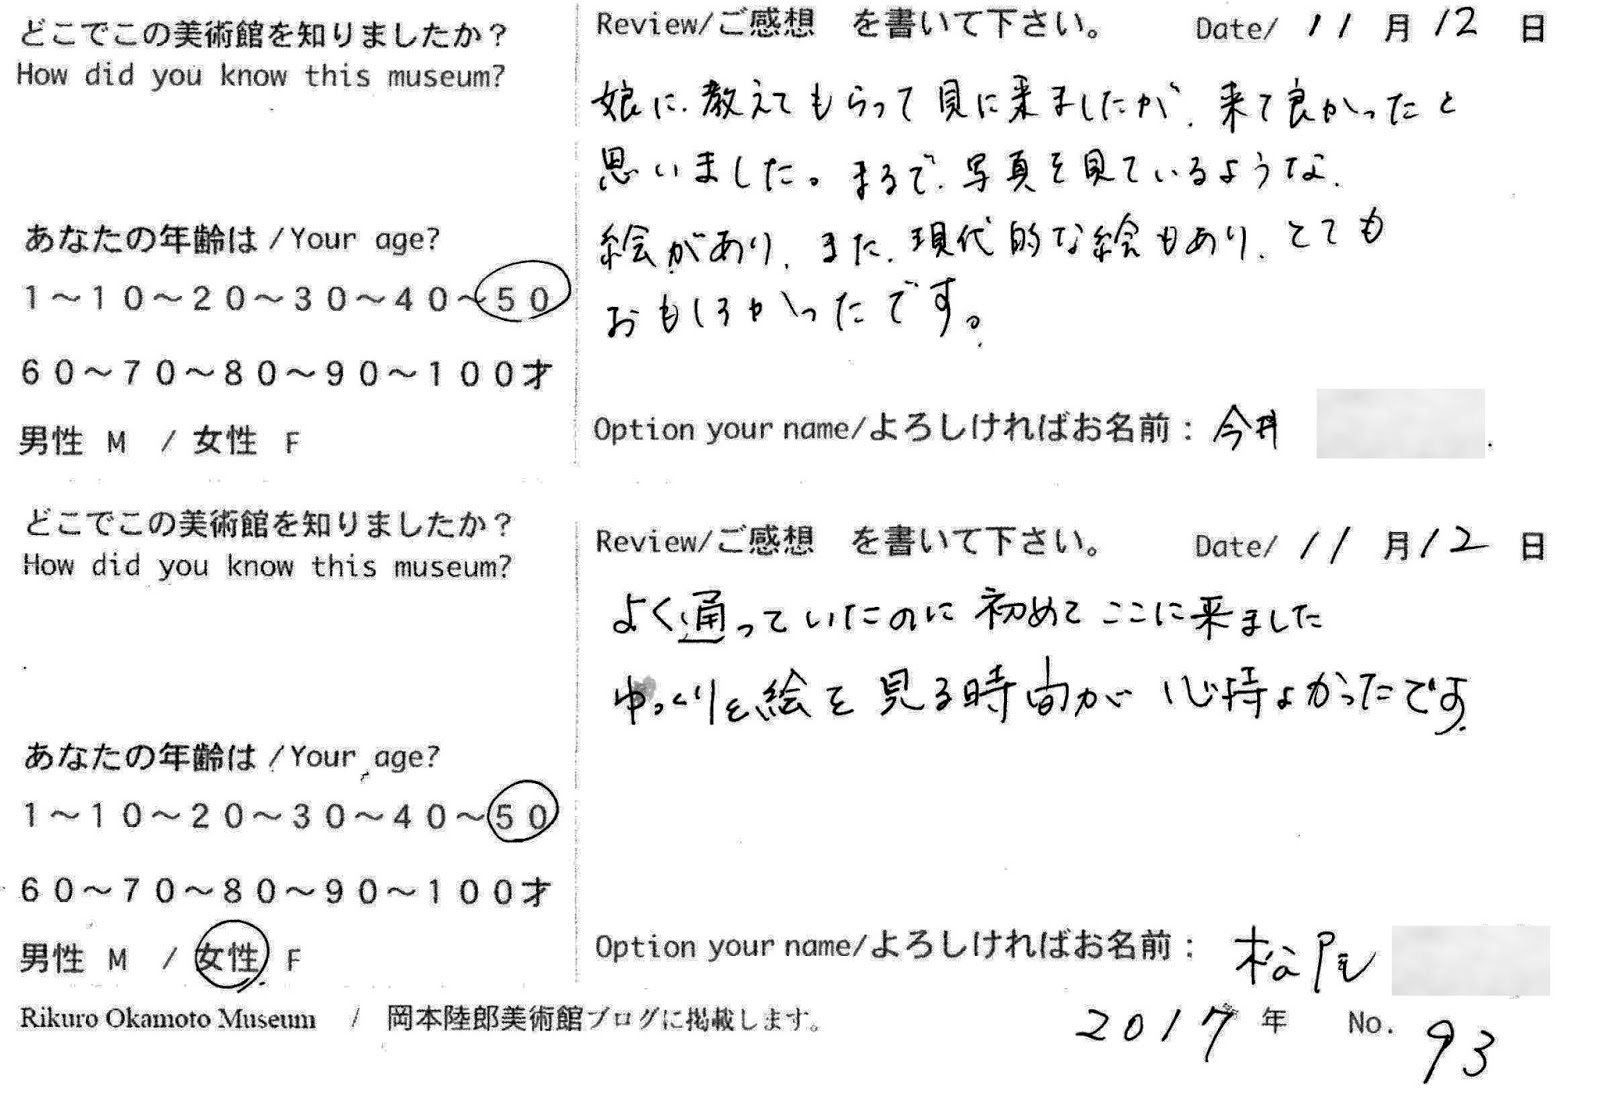 どこでこの美術館を知りましたか？
How did you know this museum?
あなたの年齢は /Your age?
1～10～20～30～40～50
60～70～80～90～100才
男性 M / 女性 F
Review/ご感想 を書いて下さい。 Date/ 11 月 12 日
娘に、教えてもらって見に来ましたが、来て良かったと
思いました。まるで、写真を見ているような、
絵があり、また、現代的な絵もあり、とても
おもしろかったです。
Option your name/よろしければお名前： 今井
どこでこの美術館を知りましたか？
How did you know this museum?
あなたの年齢は /Your age?
1～10～20～30～40～50
60～70～80～90～100才
男性 M / 女性 F
Review/ご感想 を書いて下さい。 Date/ 11 月 12 日
よく通っていたのに 初めて ここに来ました
ゆっくりと絵を 見る時間が 心持よかったです
Option your name/よろしければお名前： 松尾
Rikuro Okamoto Museum / 岡本陸郎美術館ブログに掲載します。 2017 年 No. 93